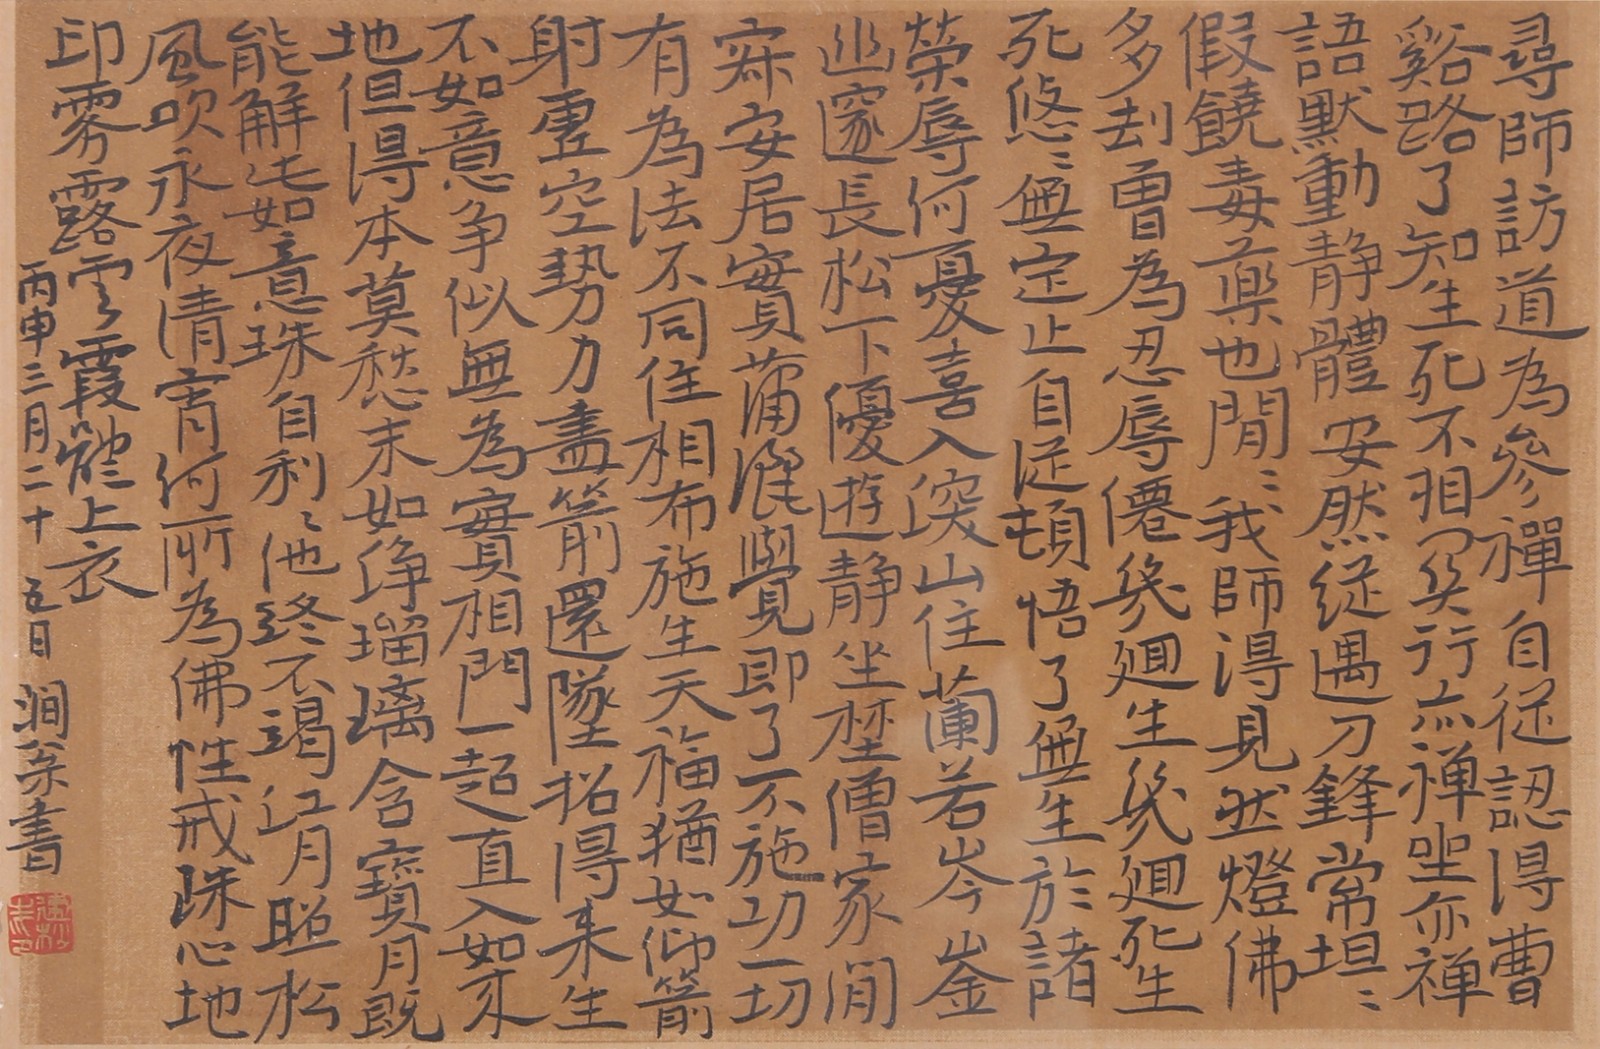 尋師訪道為參禪自從認得曹
谿路了知生死不相関行亦禅坐亦禅
語默動静體安然縦遇刀鋒常坦〻
假饒毒藥也閒〻我師得見然燈佛
多刦曽為忍辱僊幾廻生幾廻死生
死悠〻無定止自従頓悟了無生於諸
榮辱何憂喜入深山住蘭若岑崟
幽邃長松下優遊静坐埜僧家闃
寂安居實蕭灑覺即了不施功一切
有為法不同住相布施生天福猶如仰箭
射虗空勢力盡箭還墜招得来生
不如意争似無為實相門一超直入如来
地但得本莫愁末如净瑠璃含寶月既
能解此如意珠自利〻他終不竭江月照松
風吹永夜清宵何所為佛性戒珠心地
印雾露雲霞體上衣
丙申三月二十五日 澗翁書